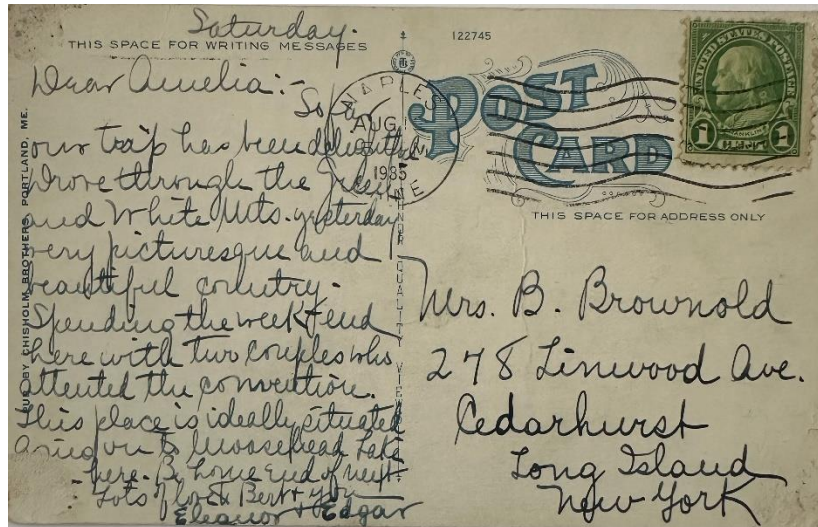 Saturday.
THIS SPACE FOR WRITING MESSAGES
Dear Amelia:-
So far
our trip has been delightful
Drove through the Green
and White Mts. yesterday
very picturesque and
beautiful country.
Spending the week-end
here with two couples who
attented the convention.
This place is ideally situated
Going on to Moosehead Lake
here. Be home end of next
Lots of love to Bert & you
Eleanor & Edgar
PUB. BY CHISHOLM BROTHERS, PORTLAND, ME.
QUALITY VIEWS
122745
NAPLES
AUG
1935
MAINE
POST
CARD
UNITED STATES POSTAGE
FRANKLIN
1 CENT 1
THIS SPACE FOR ADDRESS ONLY
Mrs. B. Brownold
278 Linwood Ave.
Cedarhurst
Long Island
New York